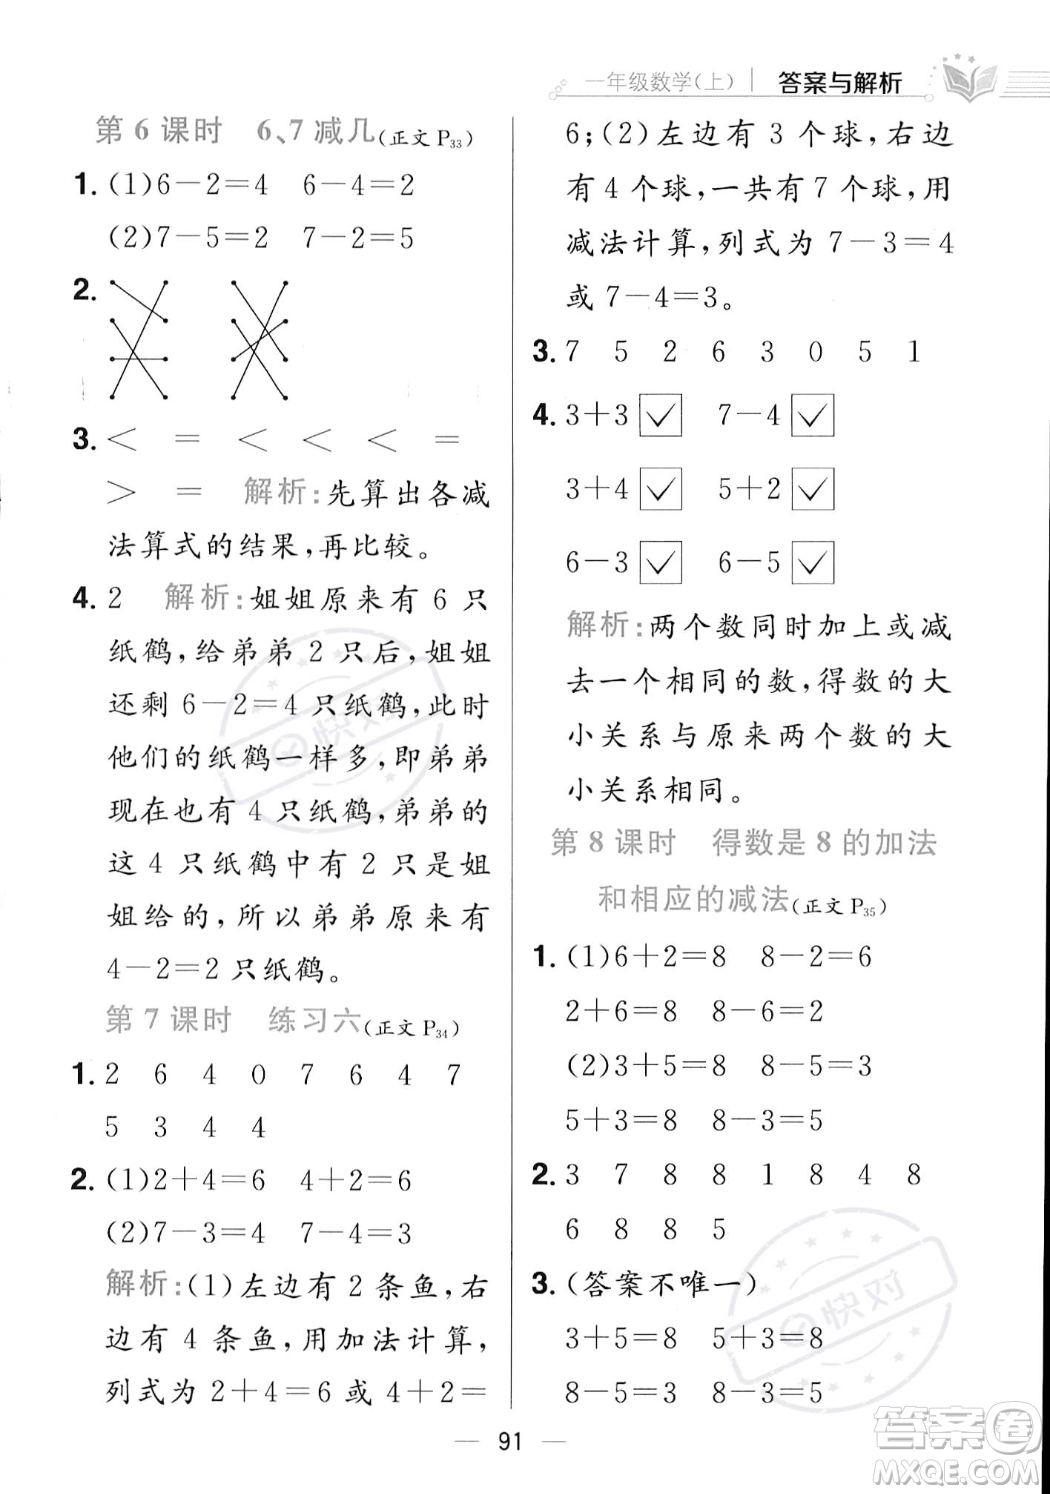 一年级数学(上) 答案与解析
第 6 课时 6、7 减几(正文 P33)
1. (1)6－2＝4 6－4＝2
(2)7－5＝2 7－2＝5
2.
3. ＜ ＝ ＜ ＜ ＜ ＝
＞ ＝ 解析:先算出各减
法算式的结果,再比较。
4. 2 解析:姐姐原来有 6 只
纸鹤,给弟弟 2 只后,姐姐
还剩 6－2＝4 只纸鹤,此时
他们的纸鹤一样多,即弟弟
现在也有 4 只纸鹤,弟弟的
这 4 只纸鹤中有 2 只是姐
姐给的,所以弟弟原来有
4－2＝2 只纸鹤。
第 7 课时 练习六(正文 P34)
1. 2 6 4 0 7 6 4 7
5 3 4 4
2. (1)2＋4＝6 4＋2＝6
(2)7－3＝4 7－4＝3
解析:(1)左边有 2 条鱼,右
边有 4 条鱼,用加法计算,
列式为 2＋4＝6 或 4＋2＝
6;(2)左边有 3 个球,右边
有 4 个球,一共有 7 个球,用
减法计算,列式为 7－3＝4
或 7－4＝3。
3. 7 5 2 6 3 0 5 1
4. 3＋3 ✓ 7－4 ✓
3＋4 ✓ 5＋2 ✓
6－3 ✓ 6－5 ✓
解析:两个数同时加上或减
去一个相同的数,得数的大
小关系与原来两个数的大
小关系相同。
第 8 课时 得数是 8 的加法
和相应的减法(正文 P35)
1. (1)6＋2＝8 8－2＝6
2＋6＝8 8－6＝2
(2)3＋5＝8 8－5＝3
5＋3＝8 8－3＝5
2. 3 7 8 8 1 8 4 8
6 8 8 5
3. (答案不唯一)
3＋5＝8 5＋3＝8
8－5＝3 8－3＝5
91
快对
快对
答案卷
MXQE.COM